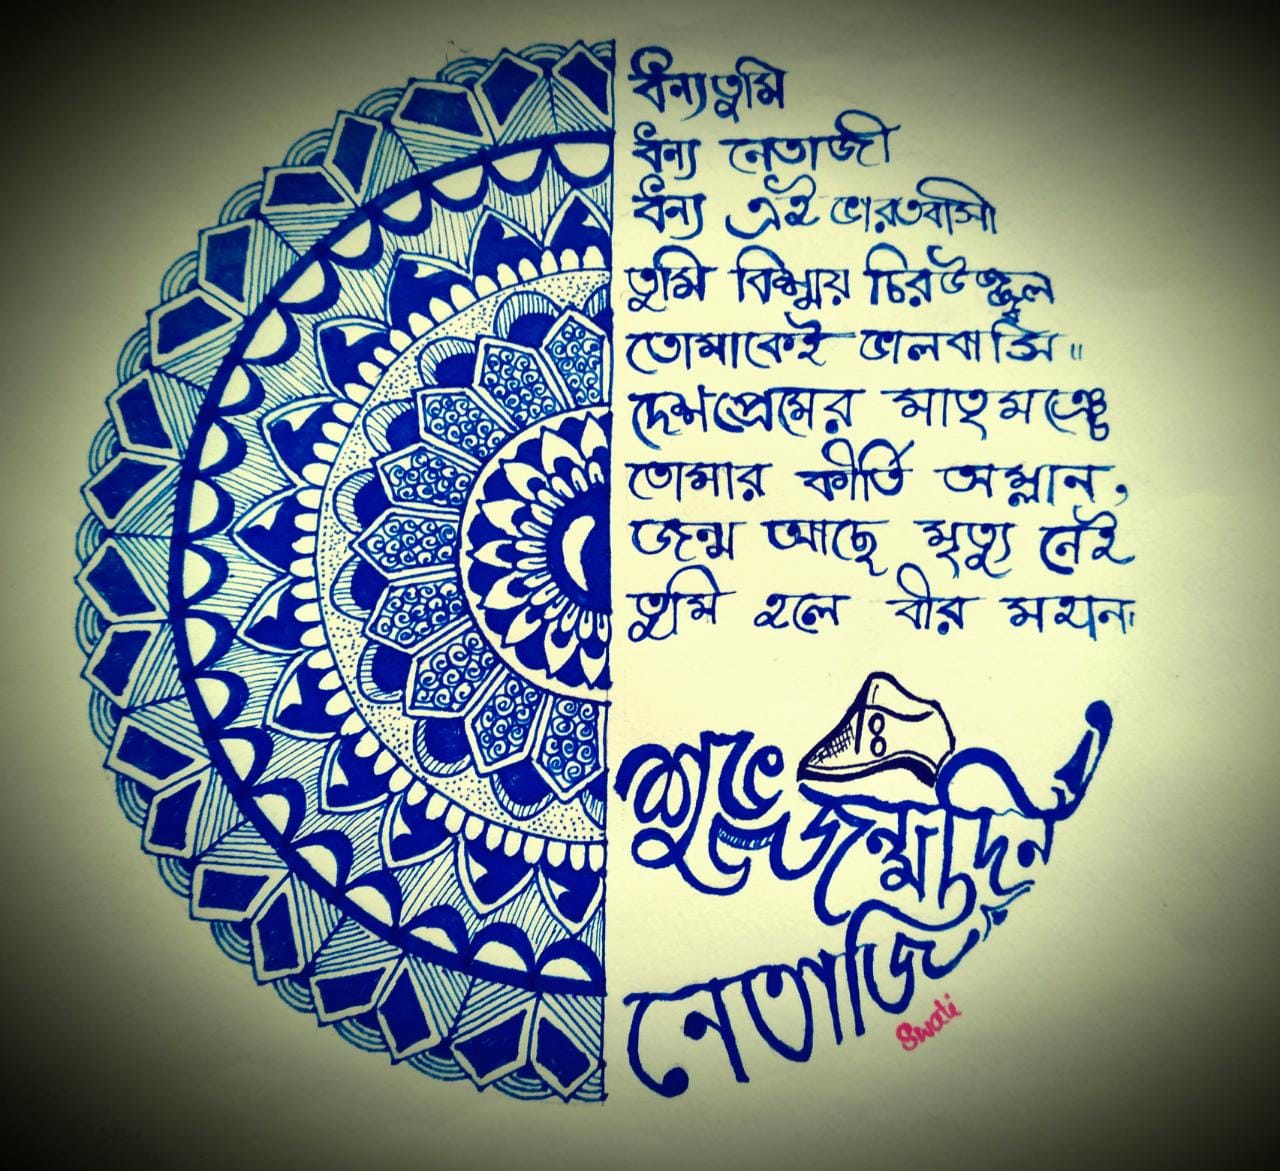 ধন্য তুমি
ধন্য নেতাজী
ধন্য এই ভারতবাসী
তুমি বিস্ময় চিরউজ্জ্বল
তোমাকেই ভালবাসি ॥
দেশপ্রেমের মাতৃমঞ্চে
তোমার কীর্তি অম্লান,
জন্ম আছে মৃত্যু নেই
তুমি হলে বীর
শুভ জন্মদিন
নেতাজি
Swati